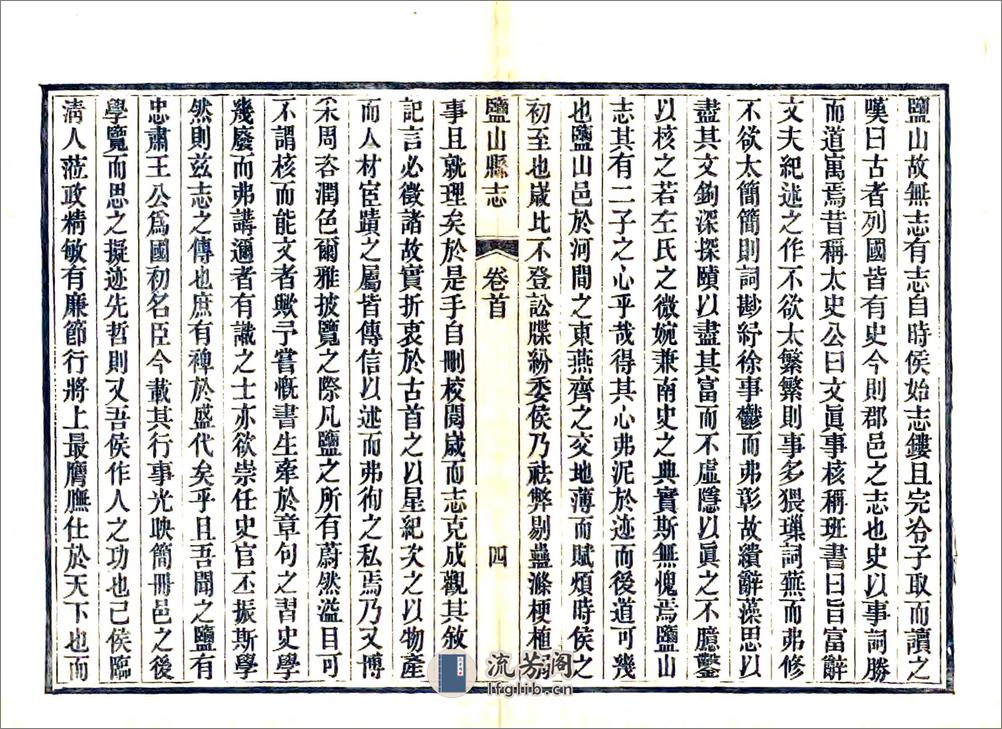 鹽山故無志有志自時侯始志鏤且完冷子取而讀之
嘆曰古者列國皆有史今則郡邑之志也史以事詞勝
而道寓焉昔稱太史公曰文眞事核稱班書曰旨富辭
文夫紀述之作不欲太繁繁則事多猥璅詞蕪而弗修
不欲太簡簡則詞尠紓徐事鬱而弗彰故繢辭藻思以
盡其文鉤深探賾以盡其富而不虛隱以眞之不臆鑿
以核之若左氏之微婉兼南史之典實斯無愧焉鹽山
志其有二子之心乎哉得其心弗泥於迹而後道可幾
也鹽山邑於河間之東燕齊之交地薄而賦煩時侯之
初至也歲比不登訟牒紛委侯乃祛弊剔蠱滌梗植弱
鹽山縣志
卷首
四
事且就理矣於是手自刪校閱歲而志克成觀其敘
記言必徵諸故實折衷於古首之以星紀次之以物產
而人材宦蹟之屬皆傳信以述而弗徇之私焉乃又博
采周咨潤色爾雅披覽之際凡鹽之所有蔚然溢目可
不謂核而能文者歟予嘗慨書生牽於章句之習史學
幾廢而弗講邇者有識之士亦欲崇任史官丕振斯學
然則兹志之傳也庶有裨於盛代矣乎且吾聞之鹽有
忠肅王公爲國初名臣今載其行事光映簡冊邑之後
學覽而思之擬迹先哲則又吾侯作人之功也已侯臨
清人蒞政精敏有廉節行將上最膺膴仕於天下也而
流芳阁
lfglib.cn